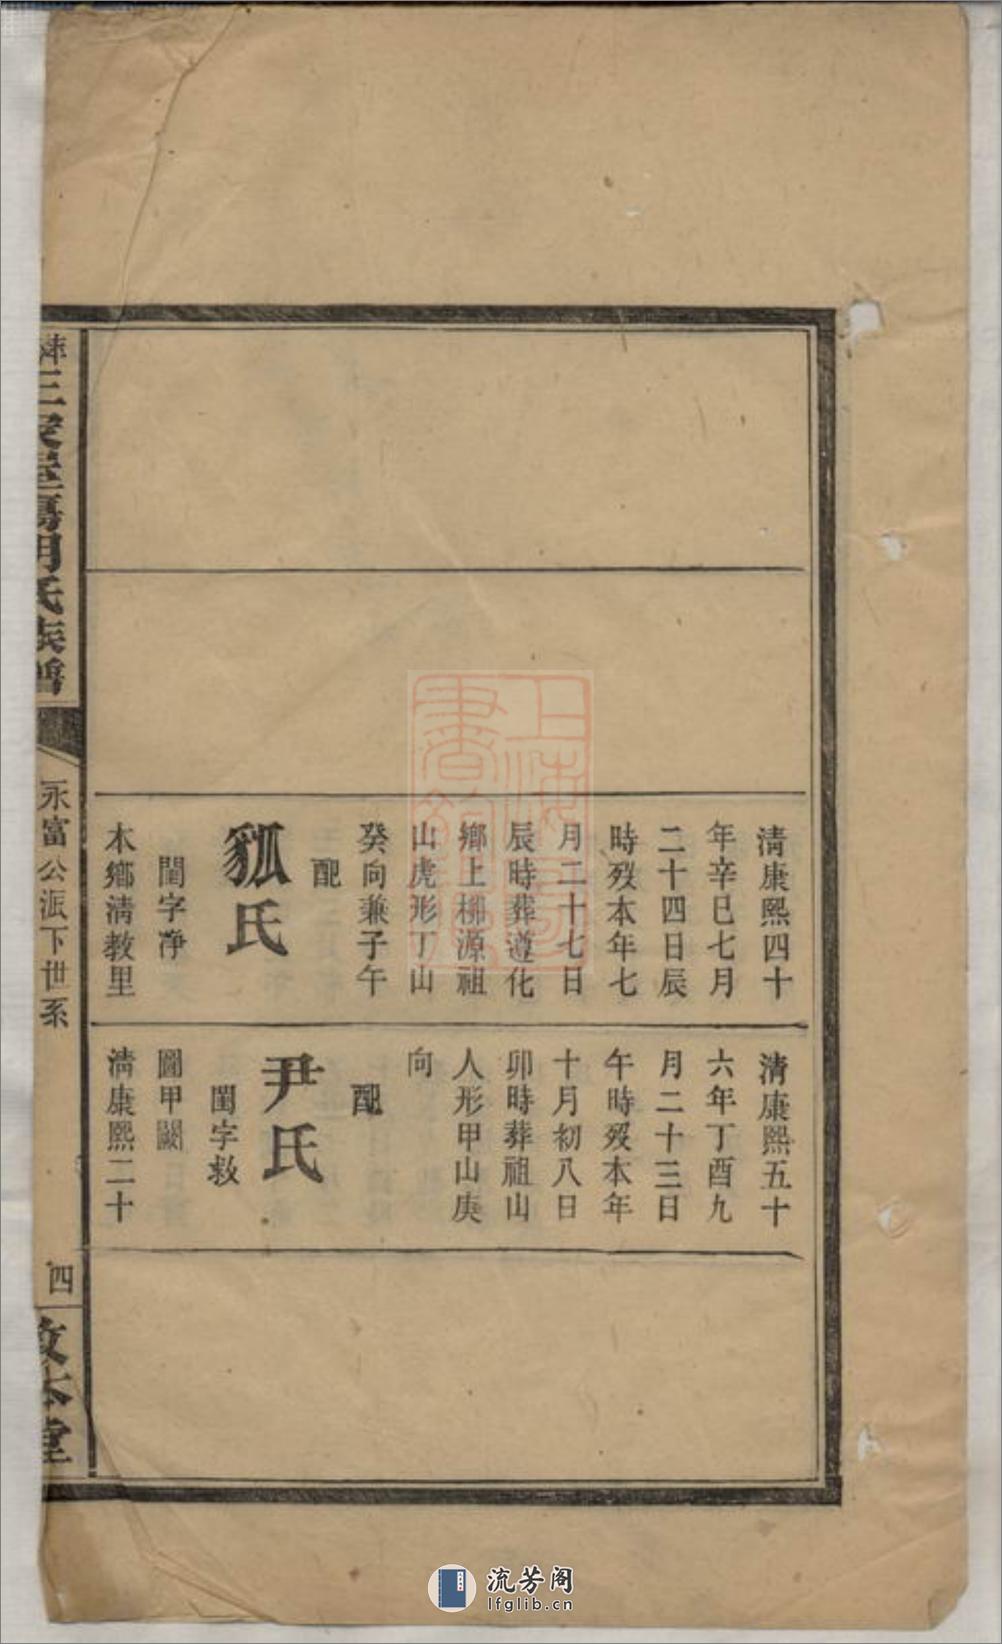 清康熙四十
年辛巳七月
二十四日辰
時歿本年七
月二十七日
辰時葬遵化
鄉上柳源祖
山虎形丁山
癸向兼子午
配
氏
閨字淨
本鄉清教里
清康熙五十
六年丁酉九
月二十三日
午時歿本年
十月初八日
卯時葬祖山
人形甲山庚
向
配
尹氏
閨字救
圖甲闕
清康熙二十
氏族譜
永富公派下世系
四
堂
上海
書
流芳阁
lfglib.cn